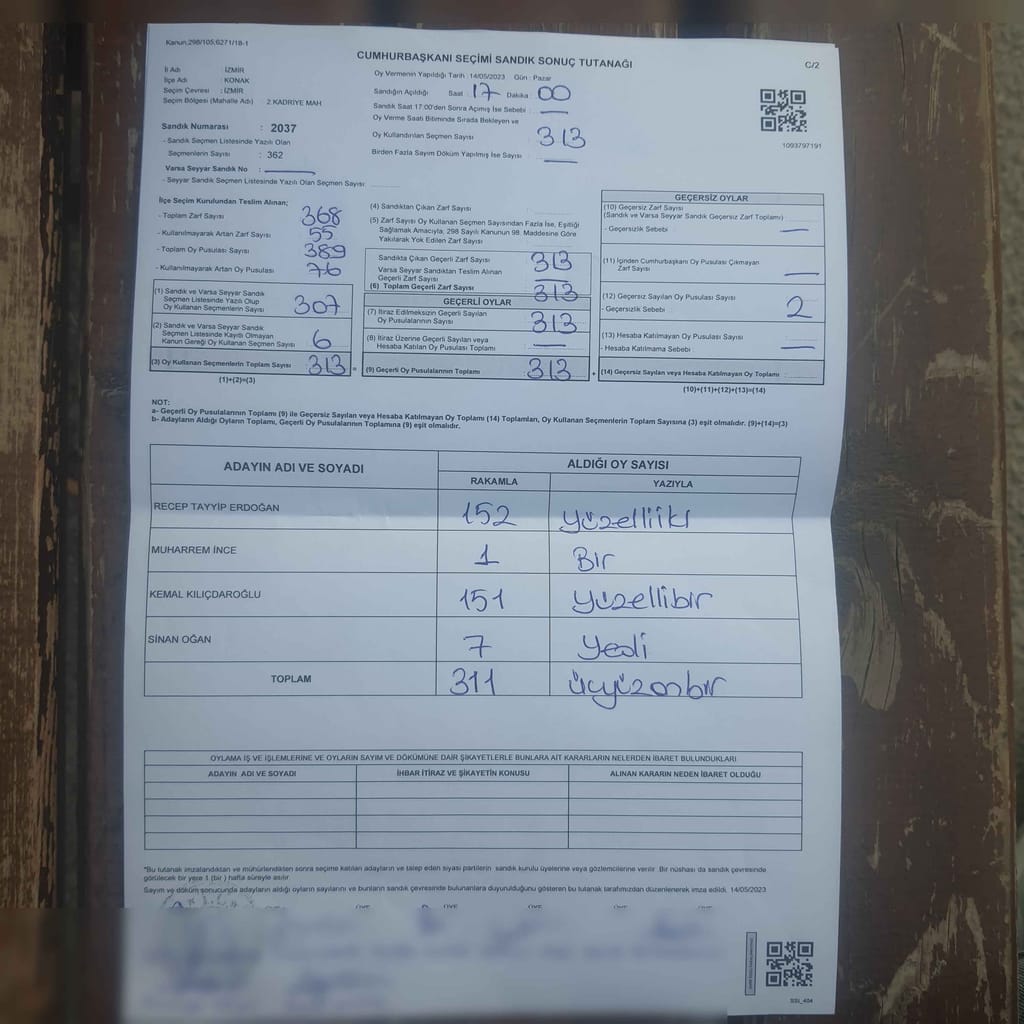 Kanun:298/105;6271/18-1
CUMHURBAŞKANI SEÇİMİ SANDIK SONUÇ TUTANAĞI
C/2
İl Adı : İZMİR
İlçe Adı : KONAK
Seçim Çevresi : İZMİR
Seçim Bölgesi (Mahalle Adı) 2.KADRİYE MAH
Sandık Numarası : 2037
- Sandık Seçmen Listesinde Yazılı Olan
Seçmenlerin Sayısı : 362
Varsa Seyyar Sandık No :
- Seyyar Sandık Seçmen Listesinde Yazılı Olan Seçmen Sayısı:
Oy Vermenin Yapıldığı Tarih :14/05/2023 Gün : Pazar
Sandığın Açıldığı Saat : 17 Dakika : 00
Sandık Saat 17:00'den Sonra Açımış İse Sebebi :
Oy Verme Saati Bitiminde Sırada Bekleyen ve
Oy Kullandırılan Seçmen Sayısı : 313
Birden Fazla Sayım Döküm Yapılmış İse Sayısı :
1093797191
İlçe Seçim Kurulundan Teslim Alınan;
- Toplam Zarf Sayısı 368
- Kullanılmayarak Artan Zarf Sayısı 55
- Toplam Oy Pusulası Sayısı 389
- Kullanılmayarak Artan Oy Pusulası 76
(1) Sandık ve Varsa Seyyar Sandık
Seçmen Listesinde Yazılı Olup
Oy Kullanan Seçmenlerin Sayısı 307
(2) Sandık ve Varsa Seyyar Sandık
Seçmen Listesinde Kayıtlı Olmayan
Kanun Gereği Oy Kullanan Seçmen Sayısı 6
(3) Oy Kullanan Seçmenlerin Toplam Sayısı 313 =
(1)+(2)=(3)
(4) Sandıktan Çıkan Zarf Sayısı
(5) Zarf Sayısı Oy Kullanan Seçmen Sayısından Fazla İse, Eşitliği
Sağlamak Amacıyla, 298 Sayılı Kanunun 98. Maddesine Göre
Yakılarak Yok Edilen Zarf Sayısı
Sandıkta Çıkan Geçerli Zarf Sayısı 313
Varsa Seyyar Sandıktan Teslim Alınan
Geçerli Zarf Sayısı
(6) Toplam Geçerli Zarf Sayısı 313
GEÇERLİ OYLAR
(7) İtiraz Edilmeksizin Geçerli Sayılan
Oy Pusulalarının Sayısı 313
(8) İtiraz Üzerine Geçerli Sayılan veya
Hesaba Katılan Oy Pusulası Toplamı
(9) Geçerli Oy Pusulalarının Toplamı 313 +
GEÇERSİZ OYLAR
(10) Geçersiz Zarf Sayısı
(Sandık ve Varsa Seyyar Sandık Geçersiz Zarf Toplamı)
- Geçersizlik Sebebi
(11) İçinden Cumhurbaşkanı Oy Pusulası Çıkmayan
Zarf Sayısı
(12) Geçersiz Sayılan Oy Pusulası Sayısı 2
- Geçersizlik Sebebi
(13) Hesaba Katılmayan Oy Pusulası Sayısı
- Hesaba Katılmama Sebebi
(14) Geçersiz Sayılan veya Hesaba Katılmayan Oy Toplamı
(10)+(11)+(12)+(13)=(14)
NOT:
a- Geçerli Oy Pusulalarının Toplamı (9) ile Geçersiz Sayılan veya Hesaba Katılmayan Oy Toplamı (14) Toplamları, Oy Kullanan Seçmenlerin Toplam Sayısına (3) eşit olmalıdır. (9)+(14)=(3)
b- Adayların Aldığı Oyların Toplamı, Geçerli Oy Pusulalarının Toplamına (9) eşit olmalıdır.
ADAYIN ADI VE SOYADI ALDIĞI OY SAYISI
RAKAMLA YAZIYLA
RECEP TAYYİP ERDOĞAN 152 yüzelliiki
MUHARREM İNCE 1 Bir
KEMAL KILIÇDAROĞLU 151 yüzellibir
SİNAN OĞAN 7 yedi
TOPLAM 311 üçyüzonbir
OYLAMA İŞ VE İŞLEMLERİNE VE OYLARIN SAYIM VE DÖKÜMÜNE DAİR ŞİKAYETLERLE BUNLARA AİT KARARLARIN NELERDEN İBARET BULUNDUKLARI
ADAYIN ADI VE SOYADI İHBAR İTİRAZ VE ŞİKAYETİN KONUSU ALINAN KARARIN NEDEN İBARET OLDUĞU
*Bu tutanak imzalandıktan ve mühürlendikten sonra seçime katılan adayların ve talep eden siyasi partilerin sandık kurulu üyelerine veya gözlemcilerine verilir. Bir nüshası da sandık çevresinde
görülecek bir yere 1 (bir) hafta süreyle asılır.
Sayım ve döküm sonucunda adayların aldığı oyların sayılarını ve bunların sandık çevresinde bulunanlara duyurulduğunu gösteren bu tutanak tarafımızdan düzenlenerek imza edildi. 14/05/2023
SSt_404